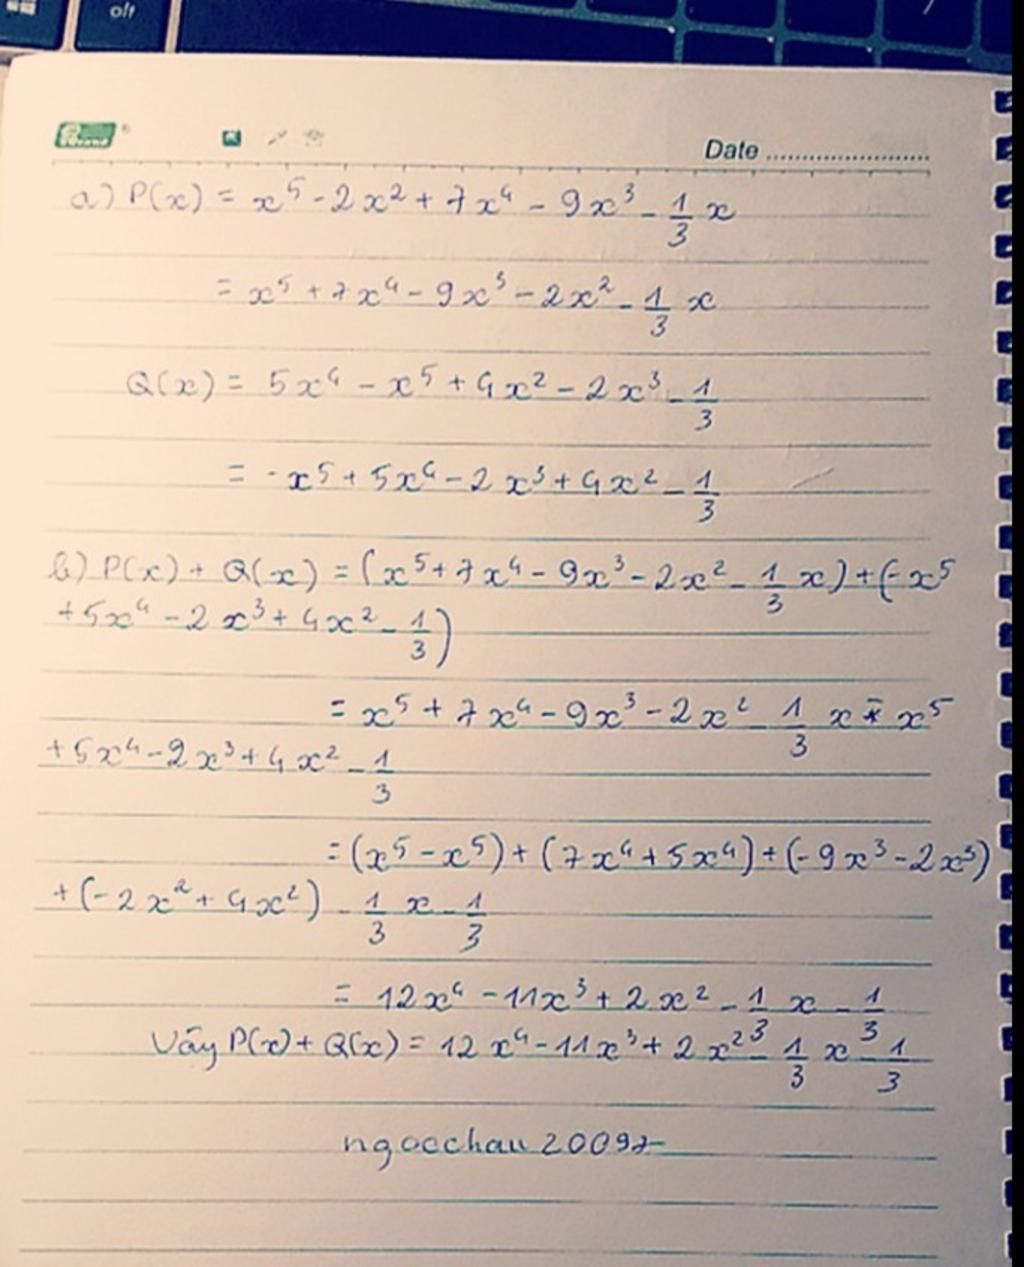 alt
Date ........................
a) P(x) = x⁵ - 2x² + 7x⁴ - 9x³ - 1/3 x
= x⁵ + 7x⁴ - 9x³ - 2x² - 1/3 x
Q(x) = 5x⁴ - x⁵ + 4x² - 2x³ - 1/3
= -x⁵ + 5x⁴ - 2x³ + 4x² - 1/3
b) P(x) + Q(x) = (x⁵ + 7x⁴ - 9x³ - 2x² - 1/3 x) + (-x⁵
+5x⁴ - 2x³ + 4x² - 1/3)
= x⁵ + 7x⁴ - 9x³ - 2x² - 1/3 x - x⁵
+5x⁴ - 2x³ + 4x² - 1/3
= (x⁵ - x⁵) + (7x⁴ + 5x⁴) + (-9x³ - 2x³)
+ (-2x² + 4x²) - 1/3 x - 1/3
= 12x⁴ - 11x³ + 2x² - 1/3 x - 1/3
Vậy P(x) + Q(x) = 12x⁴ - 11x³ + 2x² - 1/3 x - 1/3
ngocchau20097